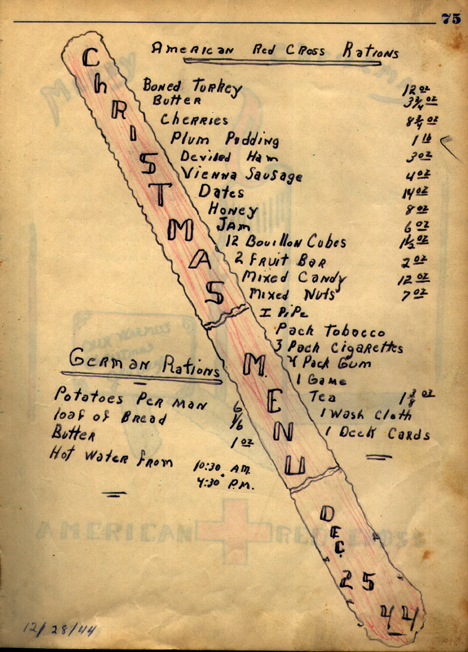 75
American Red Cross Rations
Christmas Menu Dec. 25 44
Boned Turkey 12 oz
Butter 3 3/4 oz
Cherries 8 3/4 oz
Plum Pudding 1 lb
Deviled Ham 3 oz
Vienna Sausage 4 oz
Dates 14 oz
Honey 8 oz
Jam 6 oz
12 Bouillon Cubes 1 1/2 oz
2 Fruit Bar 2 oz
Mixed Candy 12 oz
Mixed Nuts 7 oz
1 Pipe
Pack Tobacco
3 Pack Cigarettes
4 Pack Gum
1 Game
Tea oz
1 Wash Cloth
1 Deck Cards
German Rations
Potatoes Per Man 6
loaf of Bread 1/6
Butter 1 oz
Hot Water From 10:30 A.M.
4:30 P.M.
AMERICAN RED CROSS
12/28/44